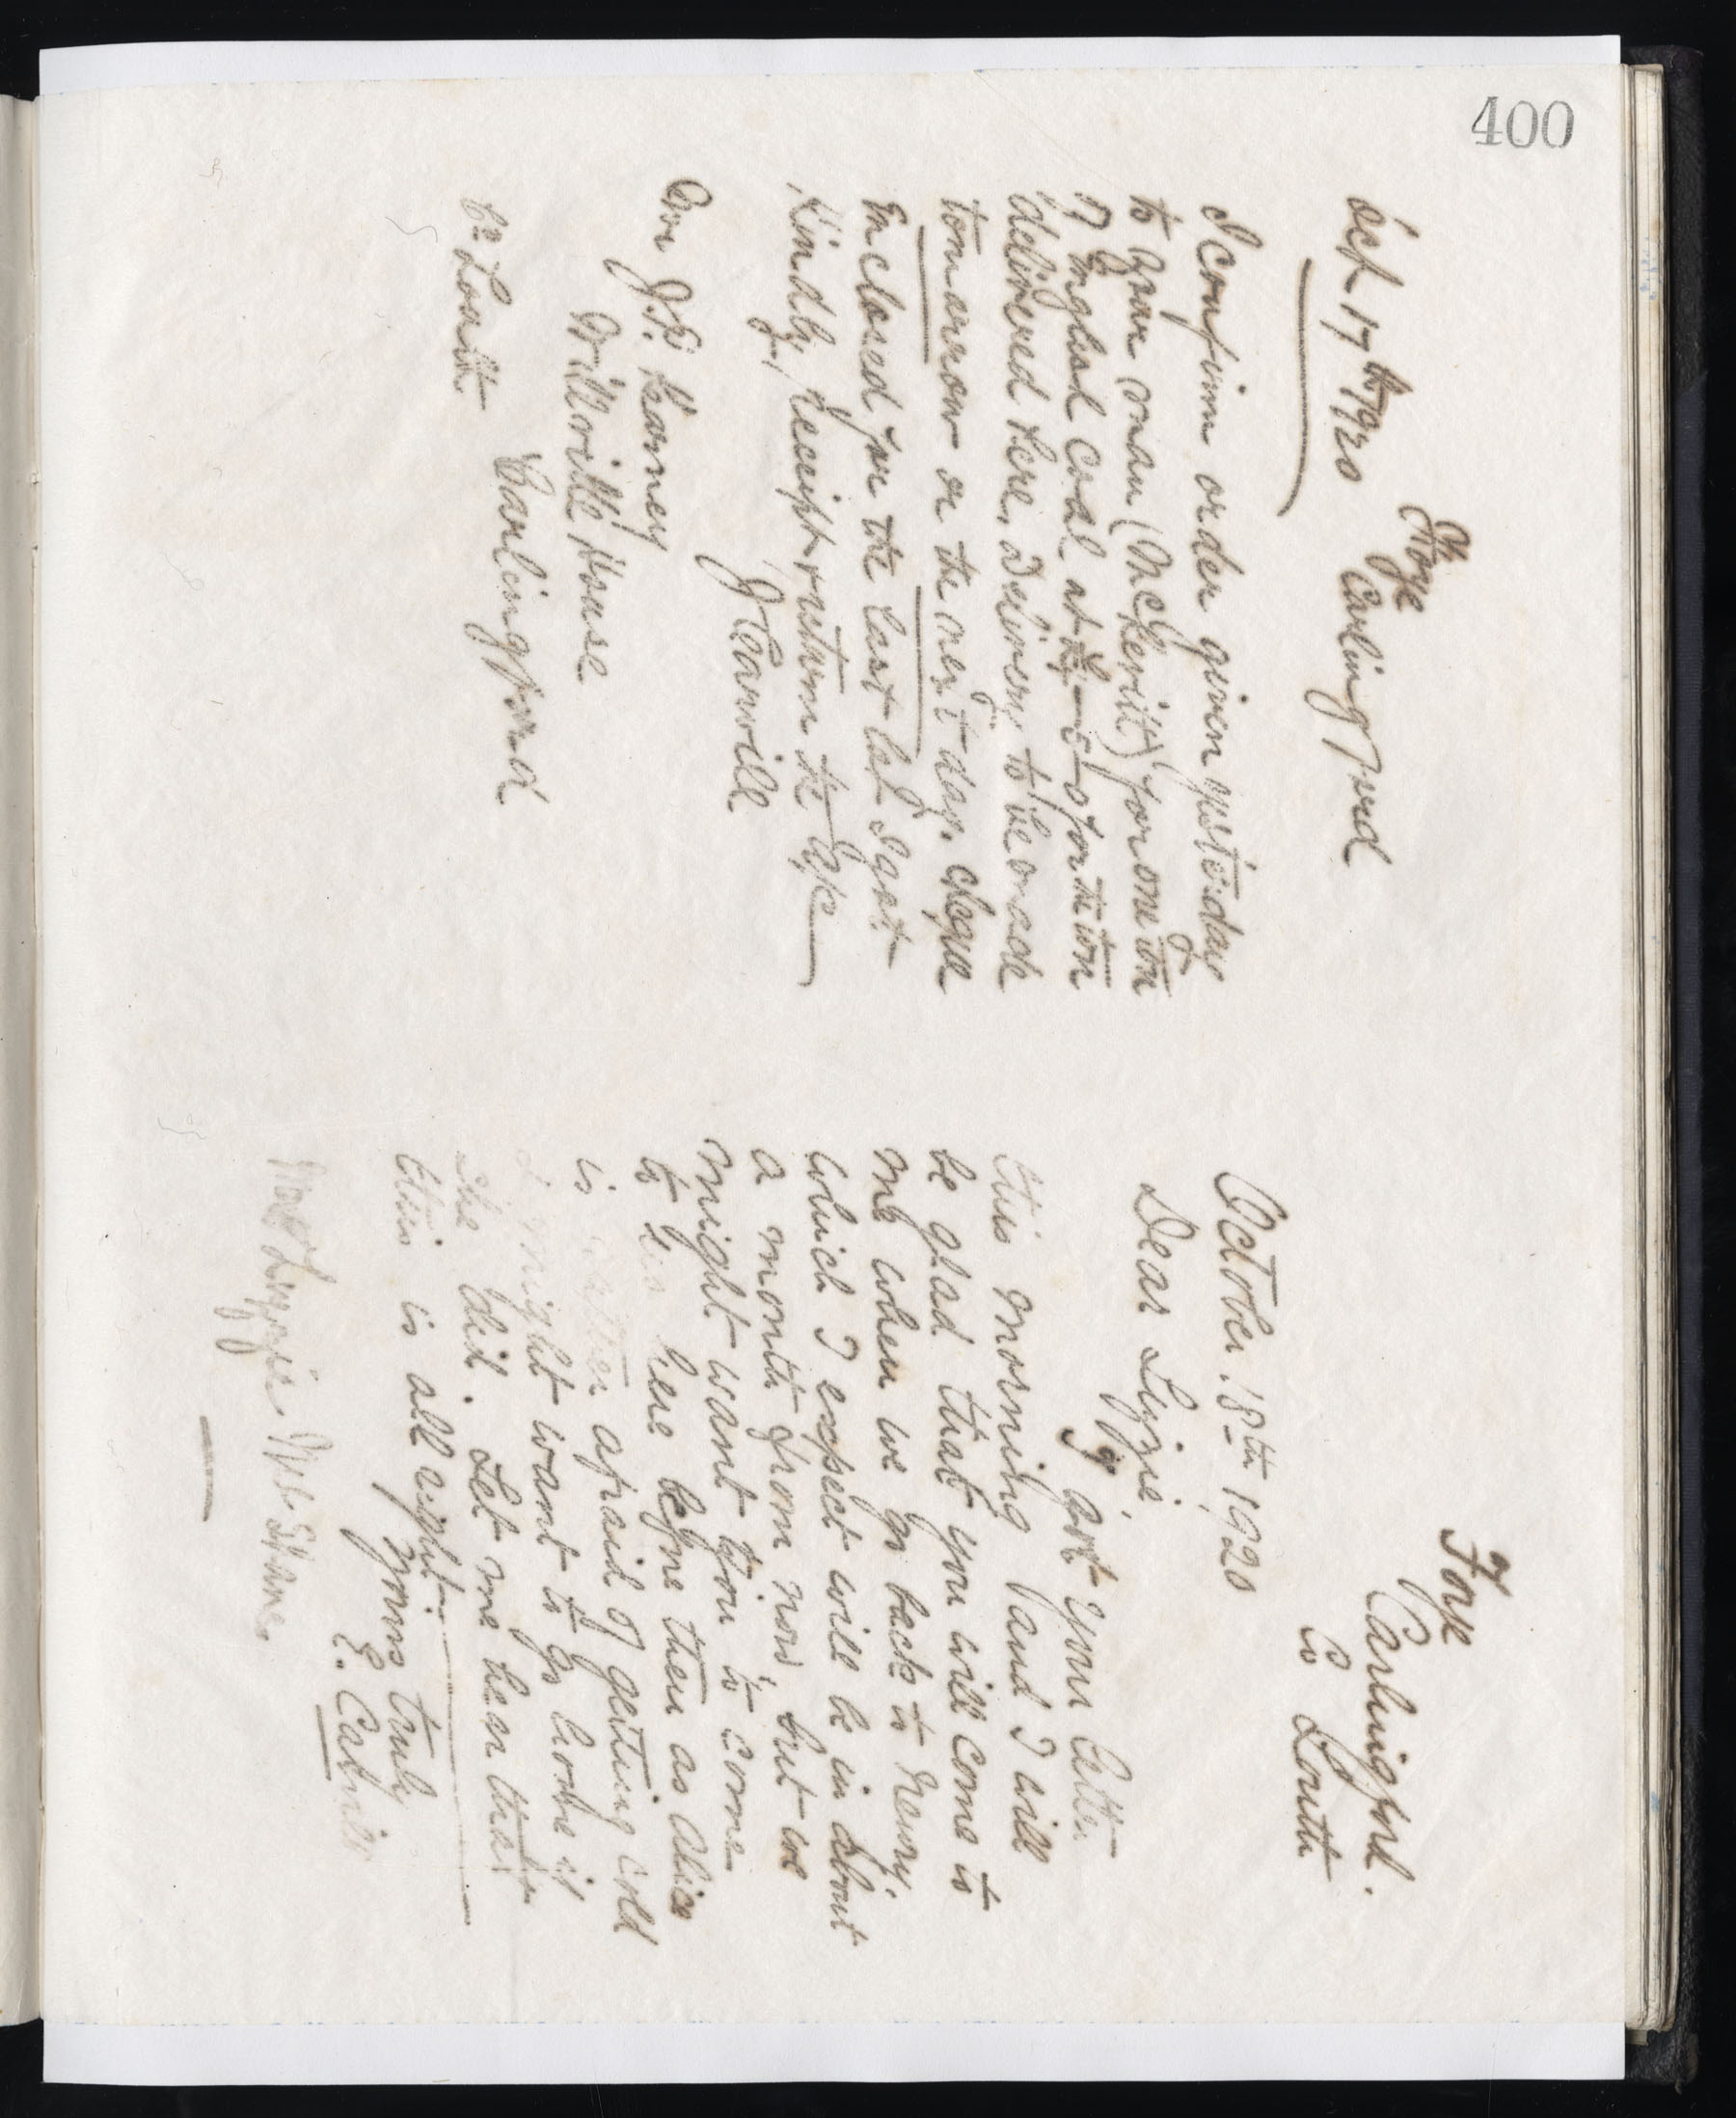 400
Foye
Carlingford
Oct 17th 1920
I confirm order given yesterday
to your man (McKevitt) for one ton
of English Coal at for the ton
delivered here, Delivery to be made
tomarrow or the next day. cheque
Enclosed for the last lot I got
Kindly receipt & return the
J Carvill
Mr J.P. Kearney
Millville House
Carlingford
Co Louth.
Foye
Carlingford.
Co Louth
October 18th 1920
Dear Lizzie,
I got your letter
this morning and I will
be glad that you will come to
me when we go back to Newry.
which I expect will be in about
a month from now, but we
might want you to come
to us here before then as Alice
is rather afraid of getting cold
& might want to go home if
she did. Let me hear that
this is all right.
Yours truly
E. Carvill
Lizzie McShane.